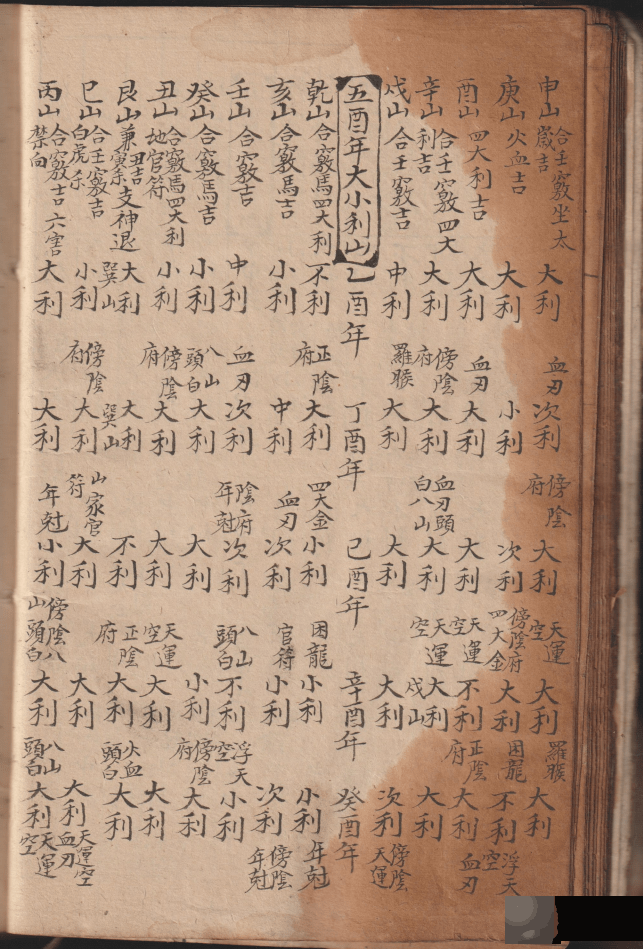 申山 合壬竅坐太歲吉 大利 血刃 次利 傍陰府 大利 天運空 大利 羅睺 大利 浮天空
庚山 火血吉 大利 小利 次利 傍陰府四大金 大利 困龍 不利
酉山 四大利吉 大利 血刃 大利 大利 天運空 不利 正陰府 大利 血刃
辛山 合壬竅四大利吉 大利 傍陰府 大利 血刃頭白八山 大利 天運空 大利 戌山 大利
戌山 合壬竅吉 中利 羅睺 大利 大利 大利 次利 傍陰天運
五酉年大小利山 乙酉年 丁酉年 己酉年 辛酉年 癸酉年
乾山 合竅馬四大利 不利 正陰府 大利 四大金 小利 困龍 小利 小利 年尅
亥山 合竅馬吉 小利 中利 血刃 次利 官符 小利 次利 傍陰年尅
壬山 合竅吉 中利 血刃 次利 陰府年尅 次利 八山頭白 不利 浮天空 小利
癸山 合竅馬吉 小利 八山頭白 大利 大利 小利 傍陰府 大利
丑山 合竅馬四大利地官符 小利 傍陰府 大利 大利 天運空 大利 大利
艮山 丑吉兼寅系支神退 大利 巽山 大利 巽山 不利 正陰府 大利 火血頭白 大利
巳山 合壬竅吉白虎系 小利 傍陰府 大利 山家官符 大利 大利 大利 天運空血刃
丙山 合竅吉六害禁向 大利 大利 年尅 小利 傍陰八山頭白 大利 八山頭白 大利 天運空